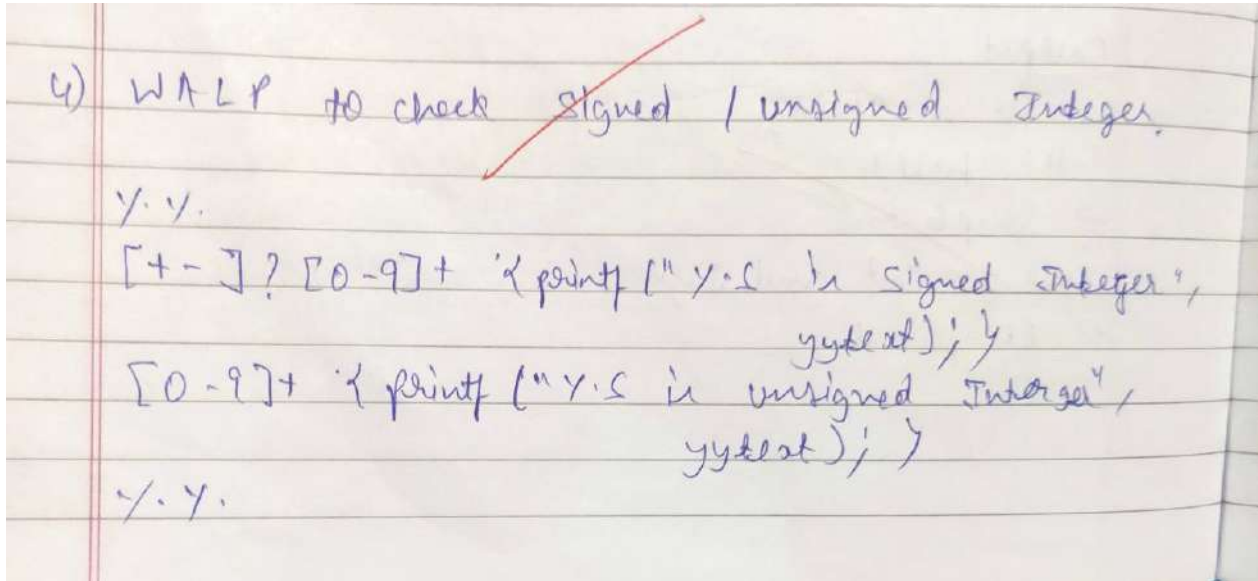 4) WALP to check signed / unsigned Integer.
%%
[+-]? [0-9]+ { printf ("%s is signed Integer",
yytext); }
[0-9]+ { printf ("%s is unsigned Interger",
yytext); }
%%